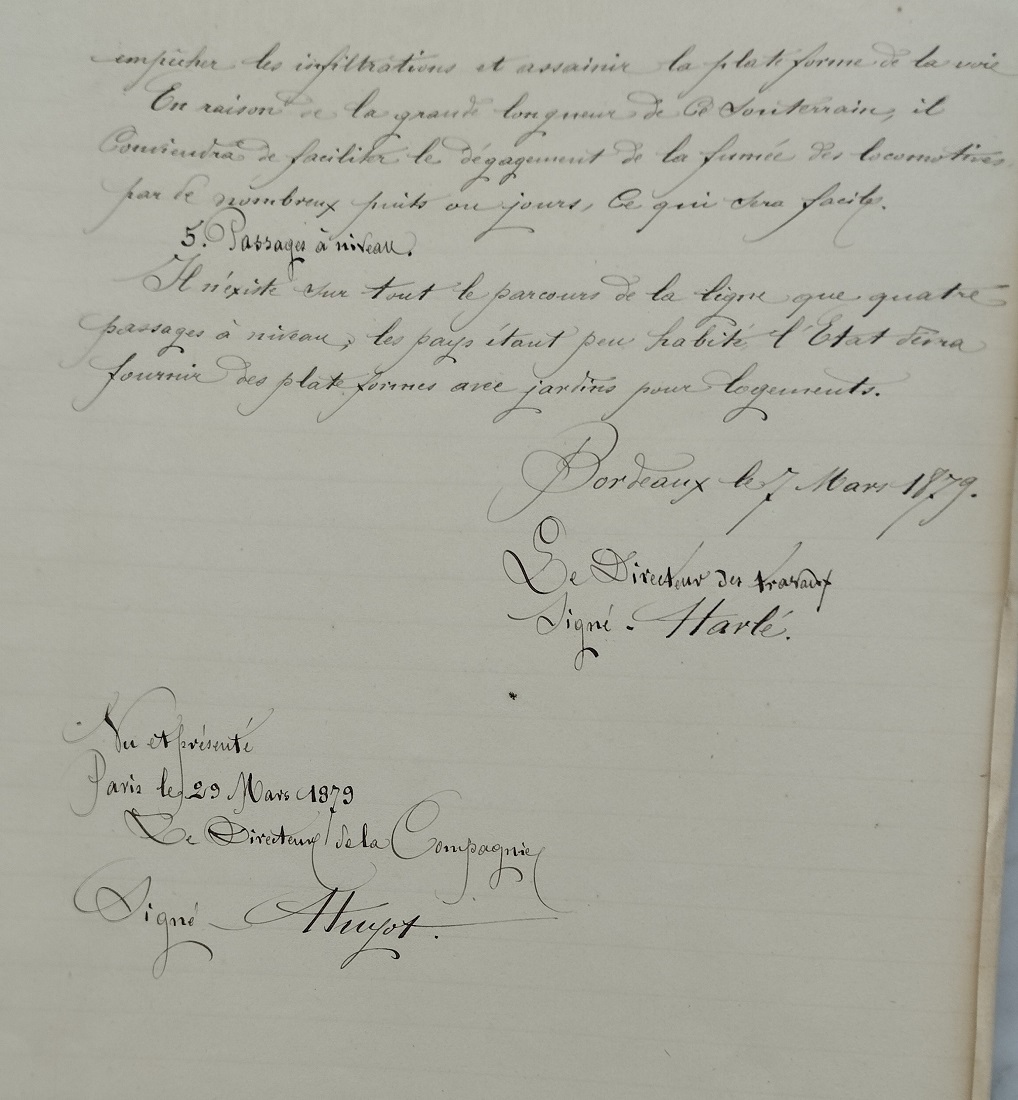 empêcher les infiltrations et assainir la plate forme de la voie
En raison de la grande longueur de ce souterrain, il
Conviendra de faciliter le dégagement de la fumée des locomotives
par de nombreux puits ou jours, ce qui sera facile.
5. Passages à niveau.
Il n'existe sur tout le parcours de la ligne que quatre
passages à niveau, les pays étant peu habité l'Etat devra
fournir des plate formes avec jardins pour logements.
Bordeaux le 7 Mars 1879.
Le Directeur des travaux
Signé - Harlé.
Vu et présenté
Paris le 29 Mars 1879
Le Directeur de la Compagnie
Signé - Huyot.